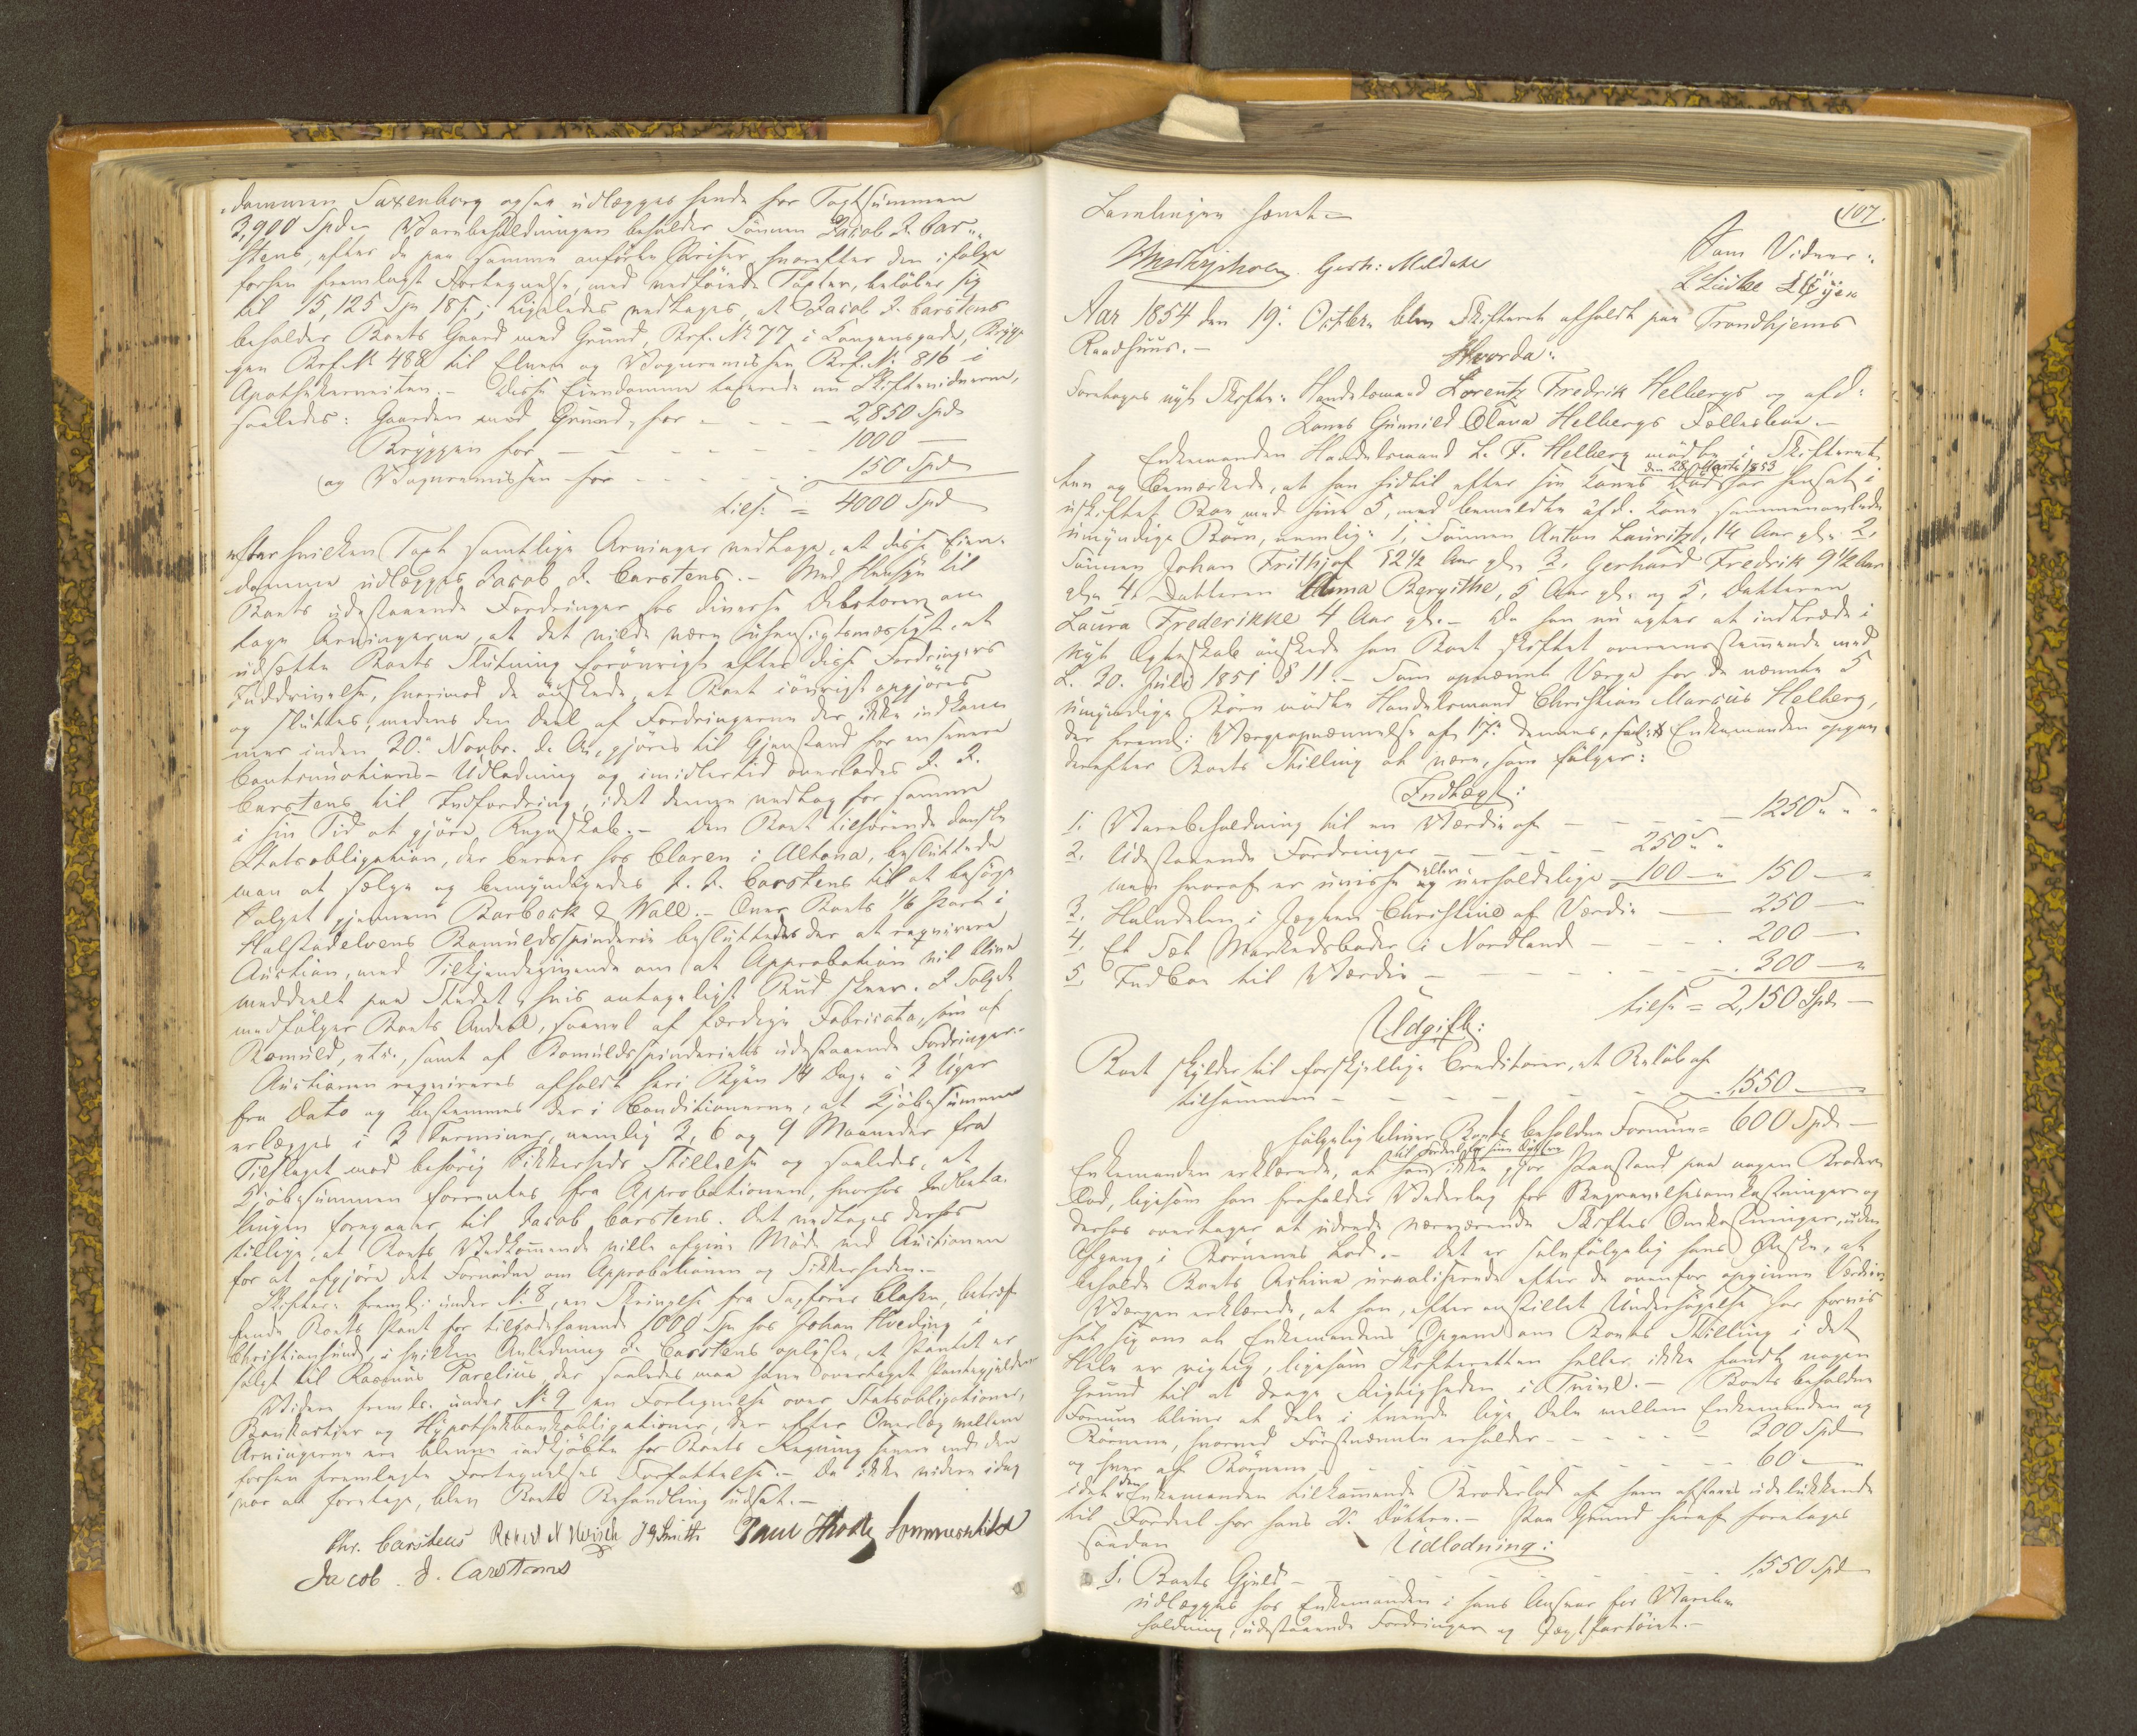 dommen Saxenborg ogsaa udlægges hende for Taxtsummen
3,900 Spd. Varebeholdningen beholder Sönnen Jacob D. Car-
stens, efter de paa samme anførte Priser, hvorefter den ifølge
forhen fremlagt Fortegnelse, med vedføiede Taxter, beløber sig
til 15,125 Spd 18 s; ligeledes vedtoges, at Jacob D. Carstens
beholder Boets Gaard med Grund, Brf. No 77 i Kongensgade, Bryg-
gen Brf. No 488 til Elven og Vognremissen Brf. No 816 i
Apothekerveiten. Disse Eiendomme taxerede nu Skiftevidnerne,
saaledes: Gaarden med Grund, for - - - 2,850 Spd
Bryggen for - - - - - 1000 —
og Vognremissen for - - - - - 150 Spd
tils: = 4000 Spd
efter hvilken Taxt samtlige Arvinger vedtoge, at disse Eien-
domme udlægges Jacob D. Carstens. - Med Hensyn til
Boets udestaaende Fordringer hos diverse Debitorer an-
toge Arvingerne, at det vilde være uhensigtsmæssigt, at
udsætte Boets Slutning forøvrigt efter disse Fordringers
Inddrivelse, hvorimod de ønskede, at Boet iøvrigt opgjøres
og sluttes, medens den Deel af Fordringerne der ikke indkom-
mer inden 20de Novbr. d. A., gjøres til Gjenstand for en senere
Continuations-Udlodning og imidlertid overlades J. D.
Carstens til Indfordring, idet denne vedtog for samme
i sin Tid at gjøre Regnskab. - Den Boet tilhørende danske
Statsobligation, der beroer hos Claren i Altona, besluttede
man at sælge og bemyndigedes J. D. Carstens til at besørge
Salget gjennem Barbosk & Wall. - Over Boets 1/6 Part i
Halstadelvens Bomuldsspinderie besluttedes der at reqvirere
Auction, med Tilkjendegivende om at Approbation vil blive
meddeelt paa Stedet, hvis antageligt Bud skeer. I Salget
medfølger Boets Andeel, saavel af færdige Fabricata, som af
Bomuld, etc., samt af Bomuldsspinderiets udestaaende Fordringer.
Auctionen reqvireres afholdt her i Byen 14 Dage à 3 Uger
fra Dato og bestemmes der i Conditionerne, at Kjøbesummen
erlægges i 3 Terminer, nemlig 3, 6 og 9 Maaneder fra
Tilslaget mod behørig Sikkerheds Stillelse og saaledes, at
Kjøbesummen forrentes fra Approbationen, hvorhos Indbeta-
lingen foregaaer til Jacob Carstens. Det vedtoges derhos
tillige, at Boets Vedkommende ville afgive Møde ved Auctionen
for at afgjøre det Fornødne om Approbationen og Sikkerheden. -
Skifter: freml: under No 8, en Skrivelse fra Sagfører Clasen, betræf-
fende Boets Pant for tilgodehavende 1000 Spd hos Johan Hveding i
Christiansund, i hvilken Anledning J. Carstens oplyste, at Pantet er
solgt til Rasmus Parelius, der saaledes maa have overtaget Pantegjælden
Videre freml. under No 9 en Fortegnelse over Statsobligationer,
Bankactier og Hypothekbankobligationer, der efter Overlæg mellem
Arvingerne ere blevne indkjøbte for Boets Regning senere end den
forhen fremlagte Fortegnelses Forfattelse. - Da ikke videre idag
var at foretage, blev Boets Behandling udsat. -
Chr. Carstens Robert N Hersch J G Smith Paul Thode Sommerschild
Jacob . D. Carstens
107.
Samlingen hævet =
Gerh: Meldahl
Som Vidner:
L Lüdke
Aar 1854 den 19: Octbr. blev Skifteret afholdt paa Trondhjems
Raadhuus. -
Hvorda:
Foretoges nyt Skifte: Handelsmand Lorentz Fredrik Helbergs og afd:
Kones Gunnild Olava Helbergs Fællesboe. -
Enkemanden Handelsmand L. F. Helberg mødte i Skifteret-
ten og bemærkede, at han hidtil efter sin Kones Død
den 28 Marts 1853
har hensat i
uskiftet Boe med sine 5, med bemeldte afd. Kone sammenavlede
umyndige Børn, nemlig: 1, Sønnen Anton Lauritz, 14 Aar gl. 2,
Sønnen Johan Frithjof 12 1/2 Aar gl. 3, Gerhard Fredrik 9 1/2 Aar
gl. 4, Datteren Anna Bergithe, 5 Aar gl. og 5, Datteren
Laura Frederikke 4 Aar gl. - Da han nu agter at indtræde i
nyt Ægteskab ønskede han Boet skiftet overensstemmende med
L. 30. Juli 1851 § 11. - Som opnævnt Værge for de nævnte 5
umyndige Børn mødte Handelsmand Christian Marcus Helberg,
der freml: Værgeopnævnelse af 17: dennes, Enkemanden opgav
derefter Boets Stilling at være, som følger:
Indtægt:
1. Varebeholdning til en Værdie af - - - - 1250 " "
2. Udestaaende Fordringer - - - - - 250 " "
men hvoraf er uvisse eller og uerholdelige 100 - " 150 — "
3. Halvdelen i Jægten Christine af Værdie - - 250 — "
4. Et Sæt Markedsboder i Nordland - - - - 200 —
5. Indboe til Værdie - - - - - - - 300 — "
tils: = 2,150 Spd. —
Udgift:
Boet skylder til forskjellige Creditorer, et Beløb af
tilsammen - - - - - - 1550 —
følgelig bliver Boets beholdne Formue = 600 Spd. -
Enkemanden erklærede, at han
til Fordeel for sine Døttre
ikke gjør Paastand paa nogen Broder-
Lod, ligesom han frafalder Vederlag for Begravelsesomkostninger og
derhos overtager at udrede nærværende Skiftes Omkostninger, uden
Afgang i Børnenes Lod. - Det er selvfølgelig hans Ønske, at
beholde Boets Activa, urealiserede efter de ovenfor opgivne Værdier.
Værgen erklærede, at han, efter anstillet Undersøgelse har forvis-
set sig om at Enkemandens Opgave om Boets Stilling i det
Hele er rigtig, ligesom Skifteretten heller ikke fandt nogen
Grund til at drage Rigtigheden i Tvivl. - Boets beholdne
Formue bliver at dele i tvende lige Dele mellem Enkemanden og
Børnene, hvorved Førstnævnte erholder - - - - - 300 Spd
og hver af Børnene - - - - - - - 60 —
idet den Enkemanden tilkommende Broderlod af ham afstaaes udelukkende
til Fordeel for hans 2de Døttre. - Paa Grund heraf foretoges
saadan
Udlodning:
1. Boets Gjæld - - - - - - - 1,550 Spd
udlægges hos Enkemanden i hans Ansvar for Varebe-
holdning, udestaaende Fordringer og Jægtfartøiet. -